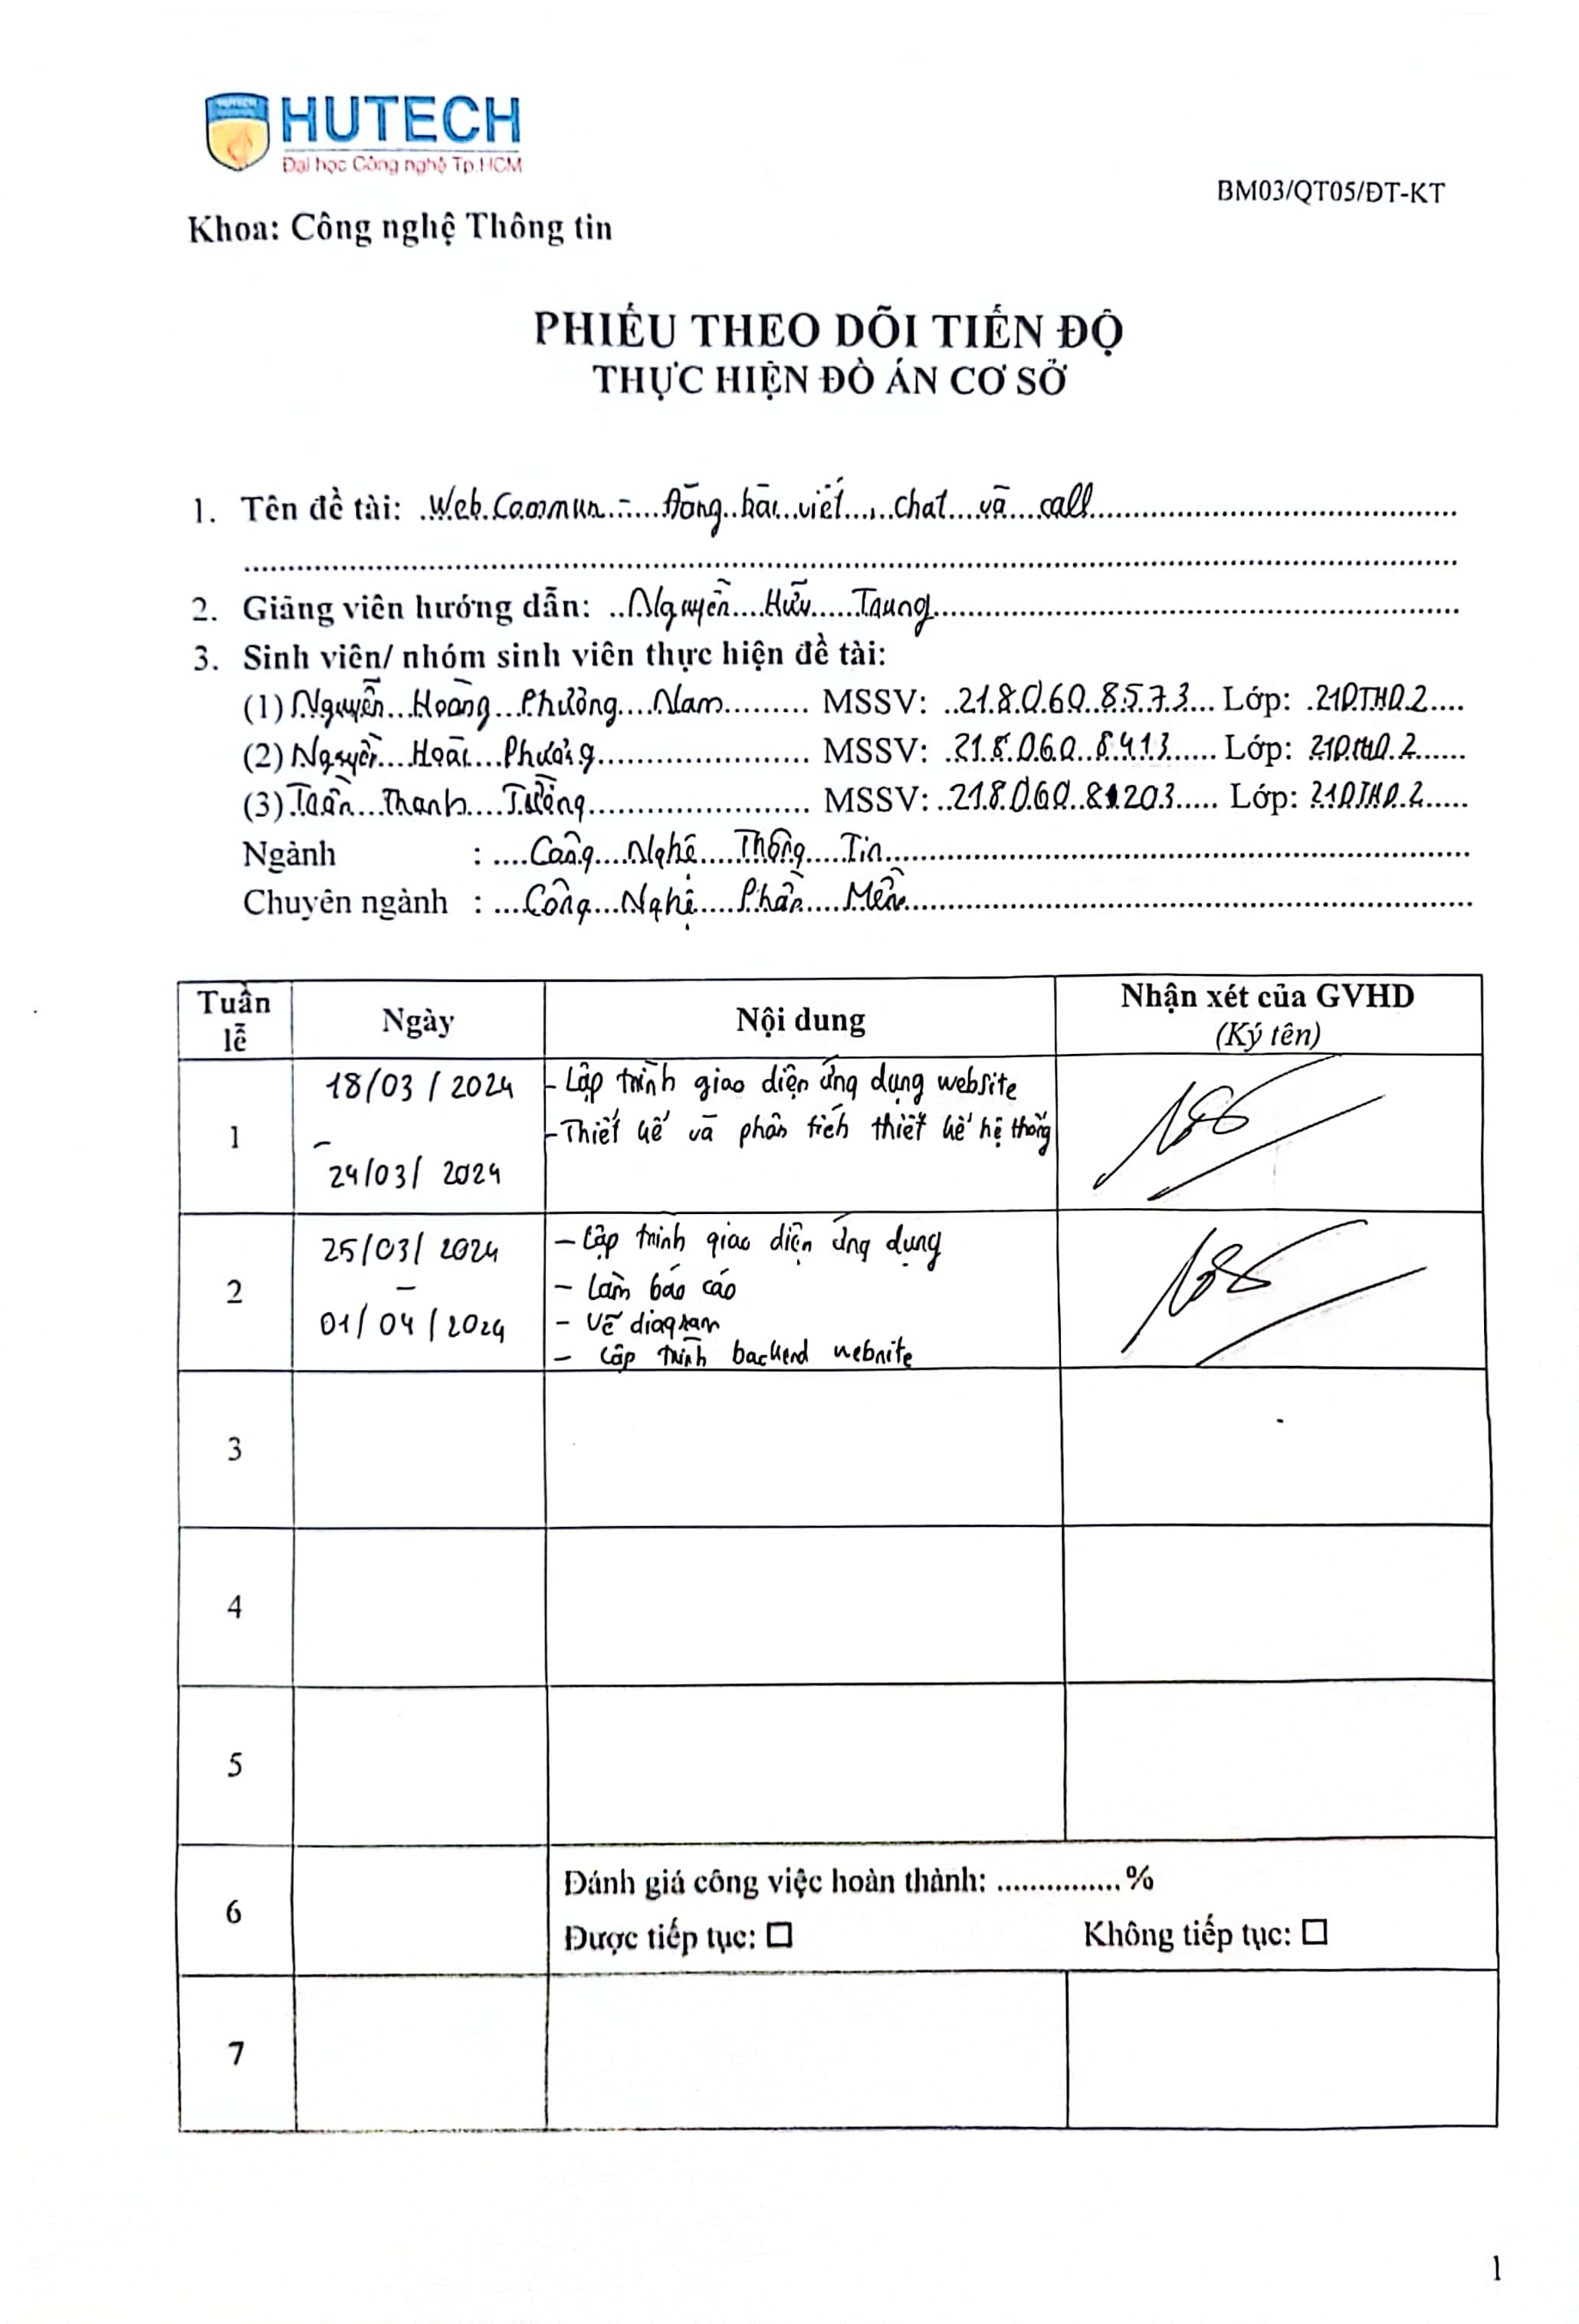 HUTECH
Đại học Công nghệ Tp.HCM
BM03/QT05/ĐT-KT
Khoa: Công nghệ Thông tin
PHIẾU THEO DÕI TIẾN ĐỘ
THỰC HIỆN ĐỒ ÁN CƠ SỞ
1. Tên đề tài: Web Commun - Đăng bài viết, chat và call
2. Giảng viên hướng dẫn: Nguyễn Hữu Trung
3. Sinh viên/ nhóm sinh viên thực hiện đề tài:
(1) Nguyễn Hoàng Phương Nam MSSV: 2180608573 Lớp: 21DTHD2
(2) Nguyễn Hoài Phương MSSV: 2180608413 Lớp: 21DTHD.2
(3) Trần Thanh Tường MSSV: 21806081203 Lớp: 21DTHD.2
Ngành : Công Nghệ Thông Tin
Chuyên ngành : Công Nghệ Phần Mềm
Tuần lễ Ngày Nội dung Nhận xét của GVHD
(Ký tên)
1 18/03/2024 - 24/03/2024
- Lập trình giao diện ứng dụng website
- Thiết kế và phân tích thiết kế hệ thống
2 25/03/2024 - 01/04/2024
- Lập trình giao diện ứng dụng
- Làm báo cáo
- Vẽ diagram
- Lập trình backend website
3
4
5
6 Đánh giá công việc hoàn thành: ...............%
Được tiếp tục: ☐ Không tiếp tục: ☐
7
1